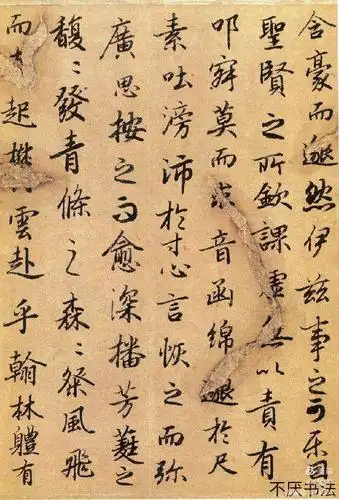 含豪而邈然伊茲事之可樂固
聖賢之所欽課虛無以責有
叩寂寞而音函綿邈於尺
素吐滂沛於寸心言恢之而弥
廣思按之而愈深播芳蕤之
馥〻發青條之森〻粲風飛
而起雲赴乎翰林軆有
不厌书法